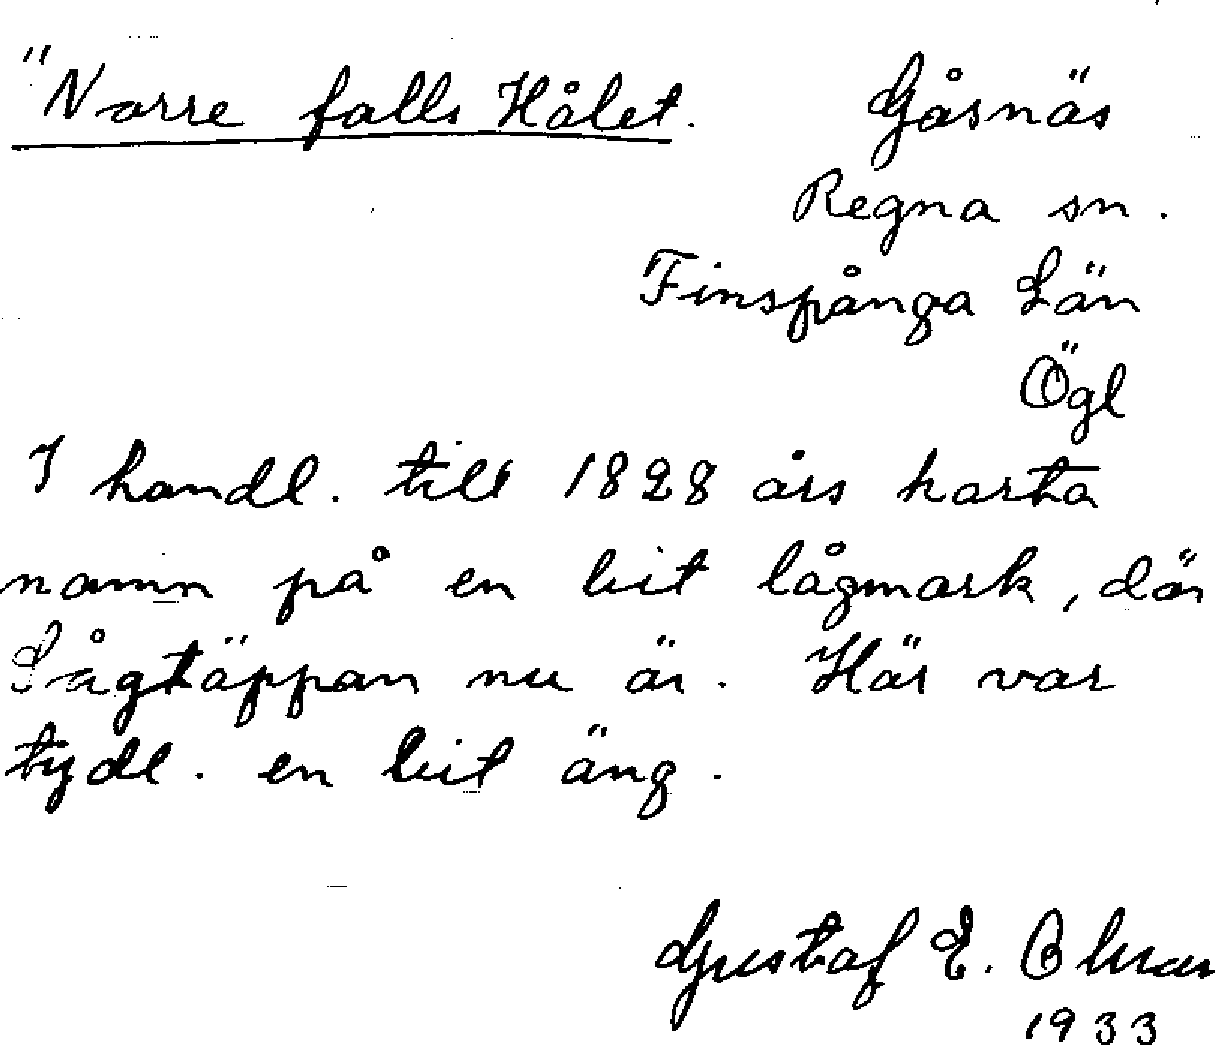 "Norre falls Hålet. Gåsnäs
Regna sn.
Finspånga Län
Ögl
I handl. till 1828 års karta
namn på en bit lågmark, där
Sågtäppan nu är. Här var
tydl. en bit äng.
Gustaf E.
1933